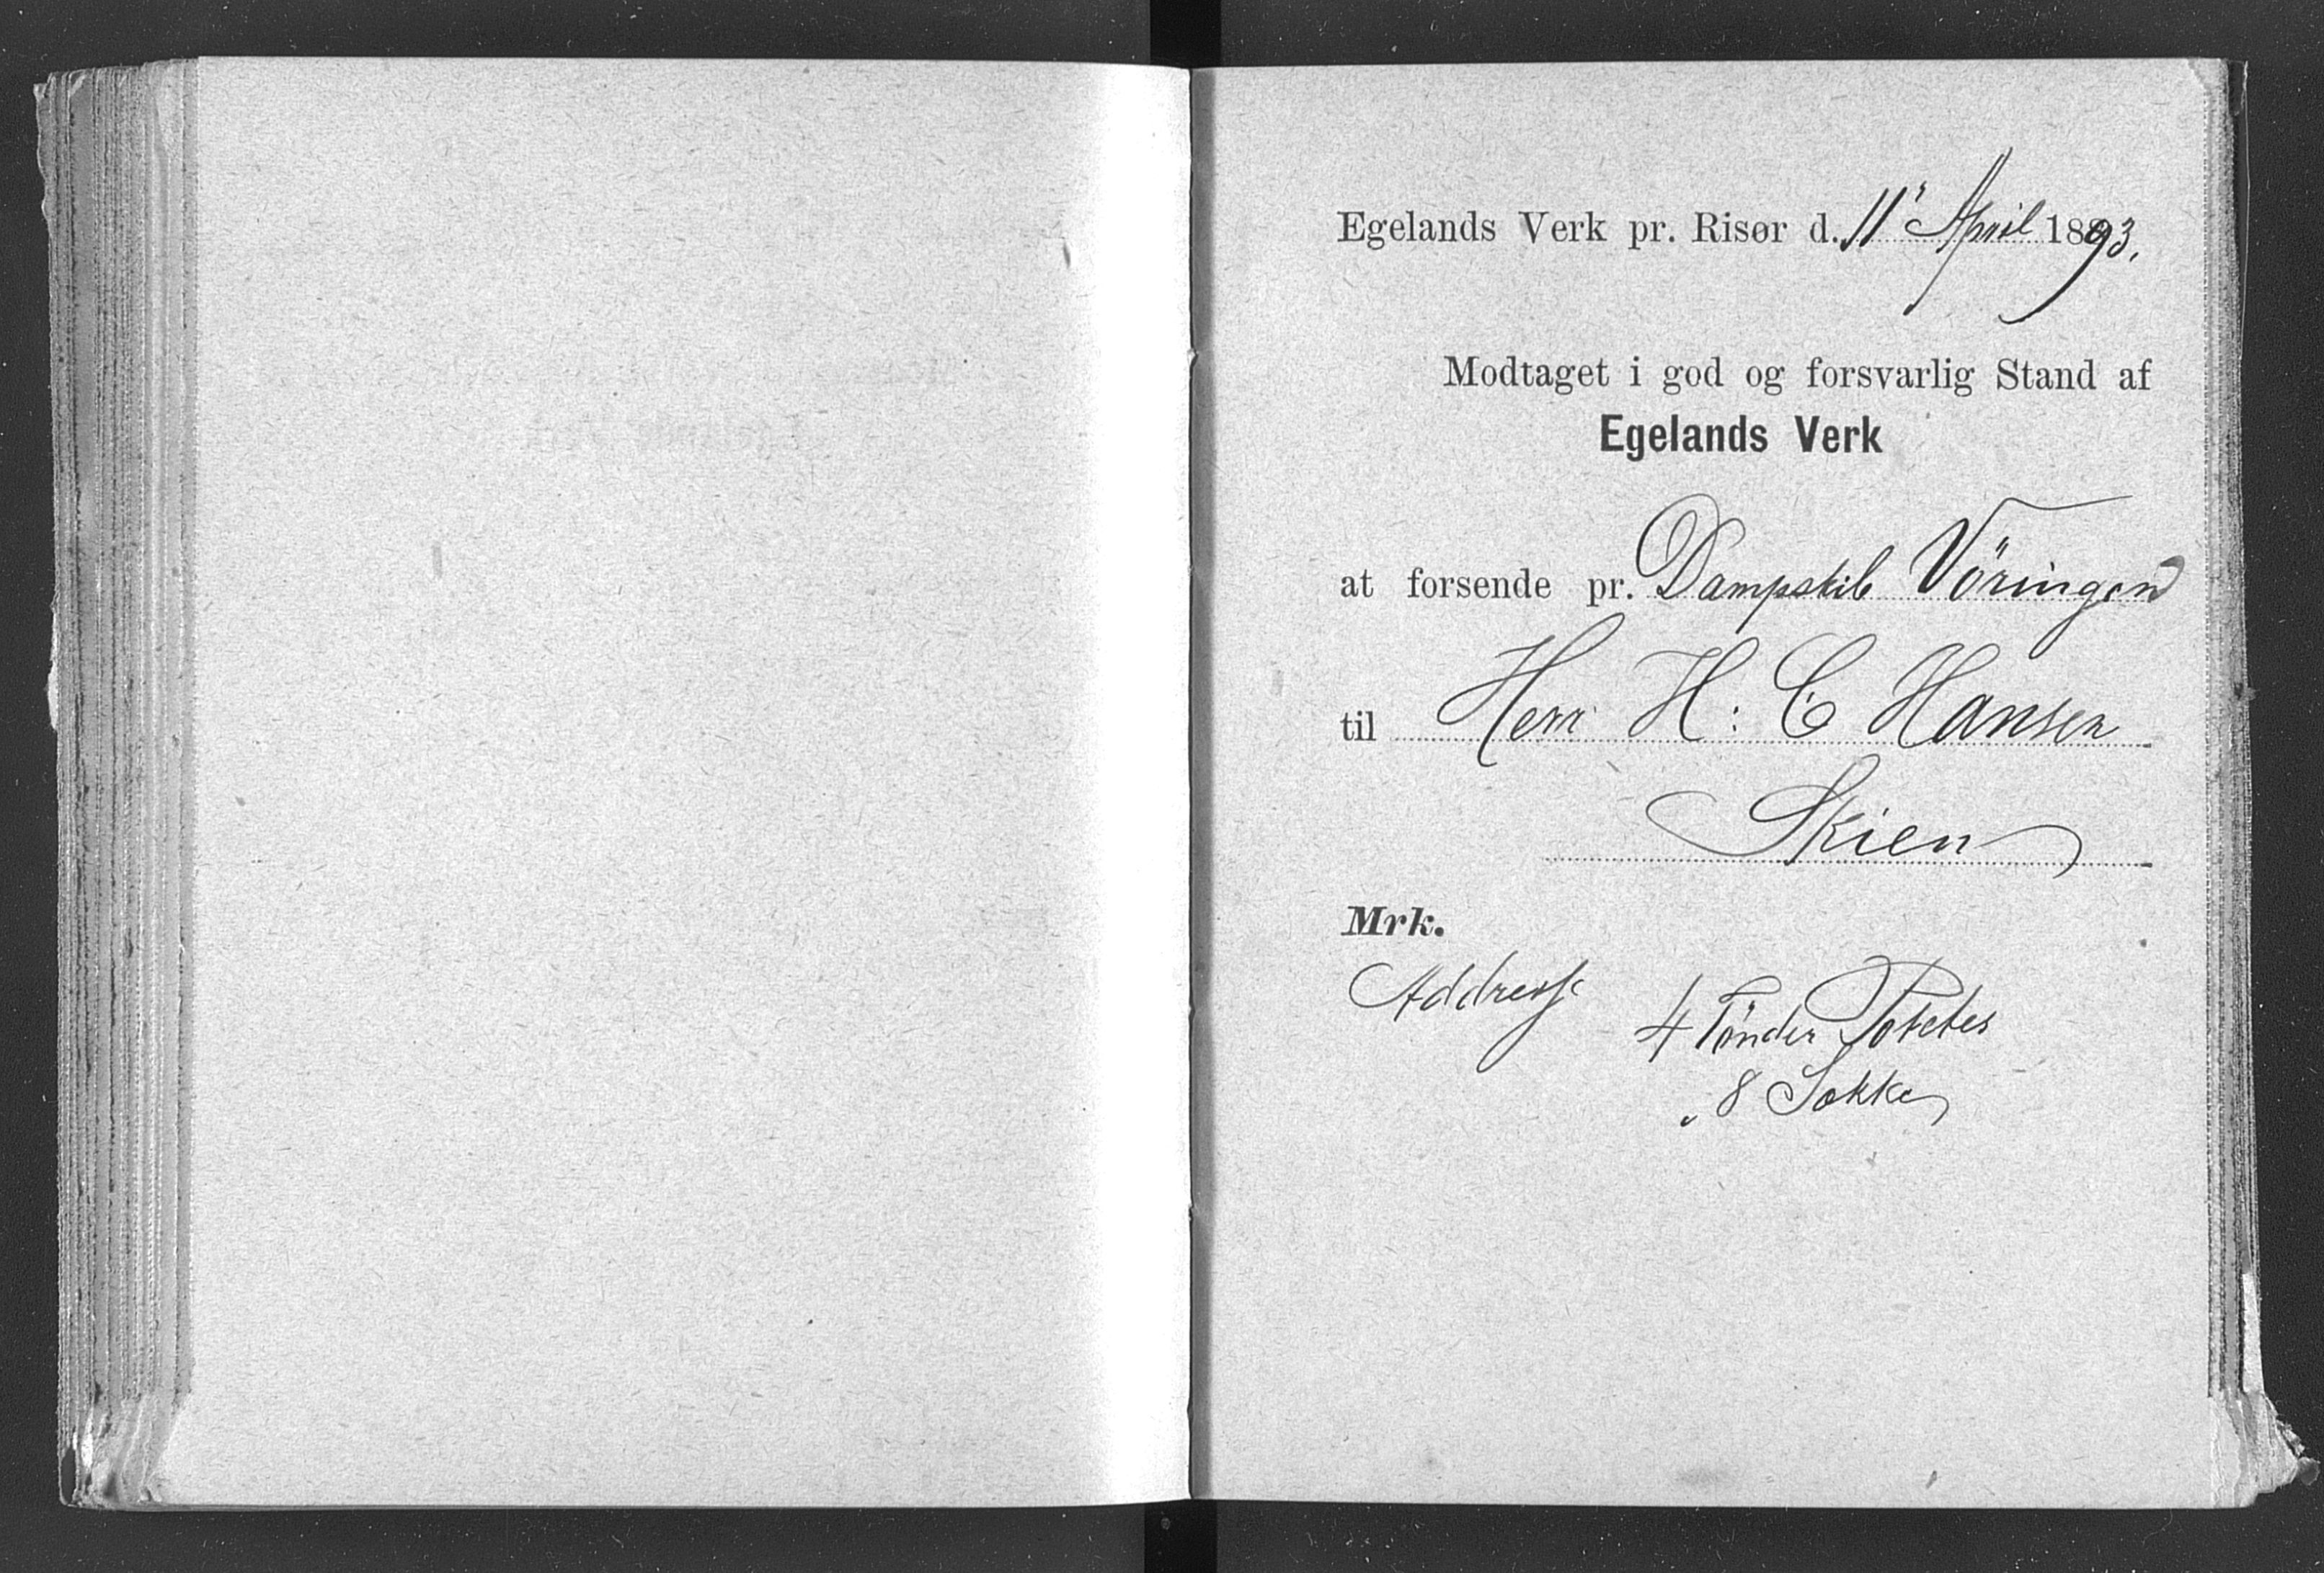 Egelands Verk pr. Risør d. 11' April 1893.
Modtaget i god og forsvarlig Stand af
Egelands Verk
at forsende pr. Dampskib Vöringen
til Herr H: C Hansen
Skien
Mrk.
Addresse
4 Tönder Poteter
i 8 Sække